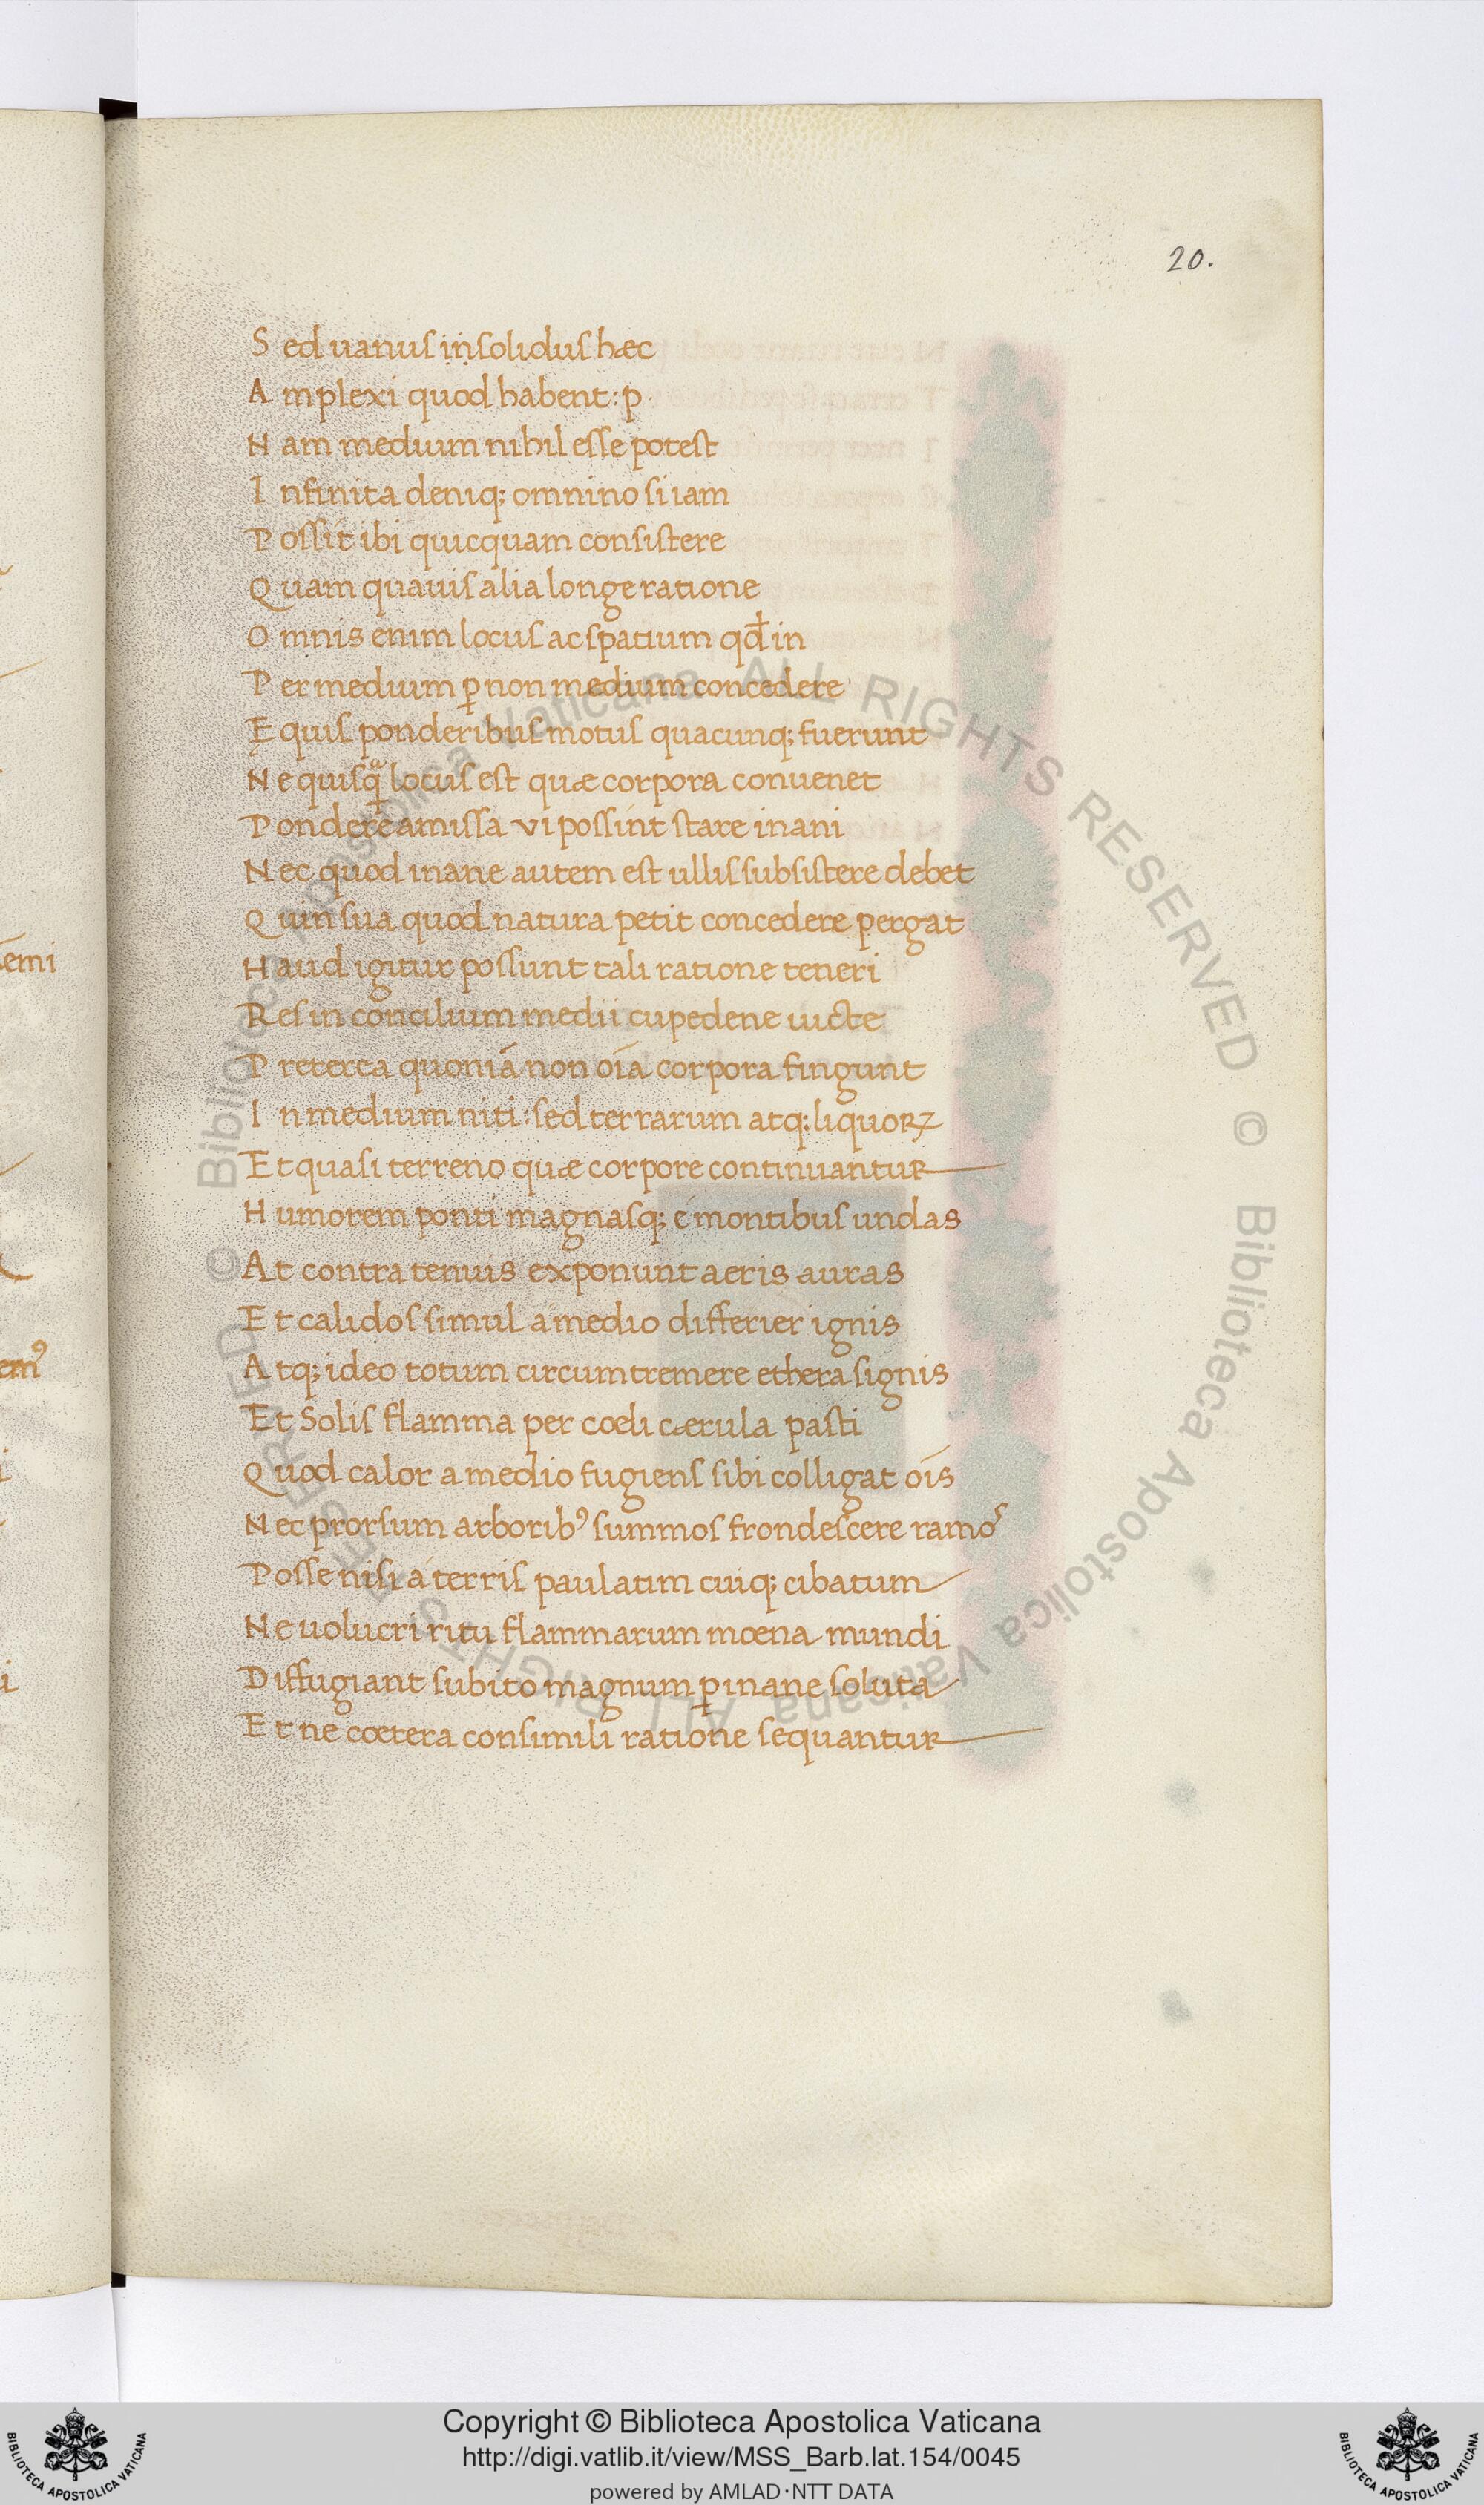 20.
Sed uanus in solidus hæc
Amplexi quod habent: p
Nam medium nihil esse potest
Infinita deniq; omnino si iam
Possit ibi quicquam consistere
Quam quauis alia longe ratione
Omnis enim locus ac spatium qđ in
Per medium ꝑ non medium concedere
Equis ponderibus motus quacunq; fuerunt
Ne quisꝗᷓ locus est quæ corpora conuenet
Pondere amissa vi possint stare inani
Nec quod inane autem est ullis subsistere debet
Quin sua quod natura petit concedere pergat
Haud igitur possunt tali ratione teneri
Res in concilium medii cupedene uicte
Preterea quoniā non oīa corpora fingunt
In medium niti: sed terrarum atq; liquoꝝ
Et quasi terreno quæ corpore continuantur
Humorem ponti magnasq; é montibus undas
At contra tenuis exponunt aeris auras
Et calidos simul a medio differier ignis
Atq; ideo totum circumtremere ethera signis
Et Solis flamma per cœli cærula pasti
Quod calor a medio fugiens sibi colligat oīs
Nec prorsum arboribꝰ summos frondescere ramos
Posse nisi á terris paulatim cuiq; cibatum
Ne uolucri ritu flammarum mœna mundi
Diffugiant subito magnum ꝑ inane soluta
Et ne cœtera consimili ratione sequantur
© Biblioteca Apostolica Vaticana ALL RIGHTS RESERVED © Biblioteca Apostolica Vaticana ALL RIGHTS RESERVED
Copyright © Biblioteca Apostolica Vaticana
http://digi.vatlib.it/view/MSS_Barb.lat.154/0045
powered by AMLAD·NTT DATA
BIBLIOTECA APOSTOLICA VATICANA
BIBLIOTECA APOSTOLICA VATICANA